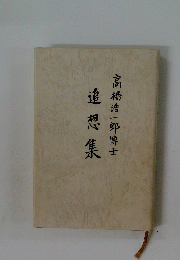 高橋浩一郎博士
追想集